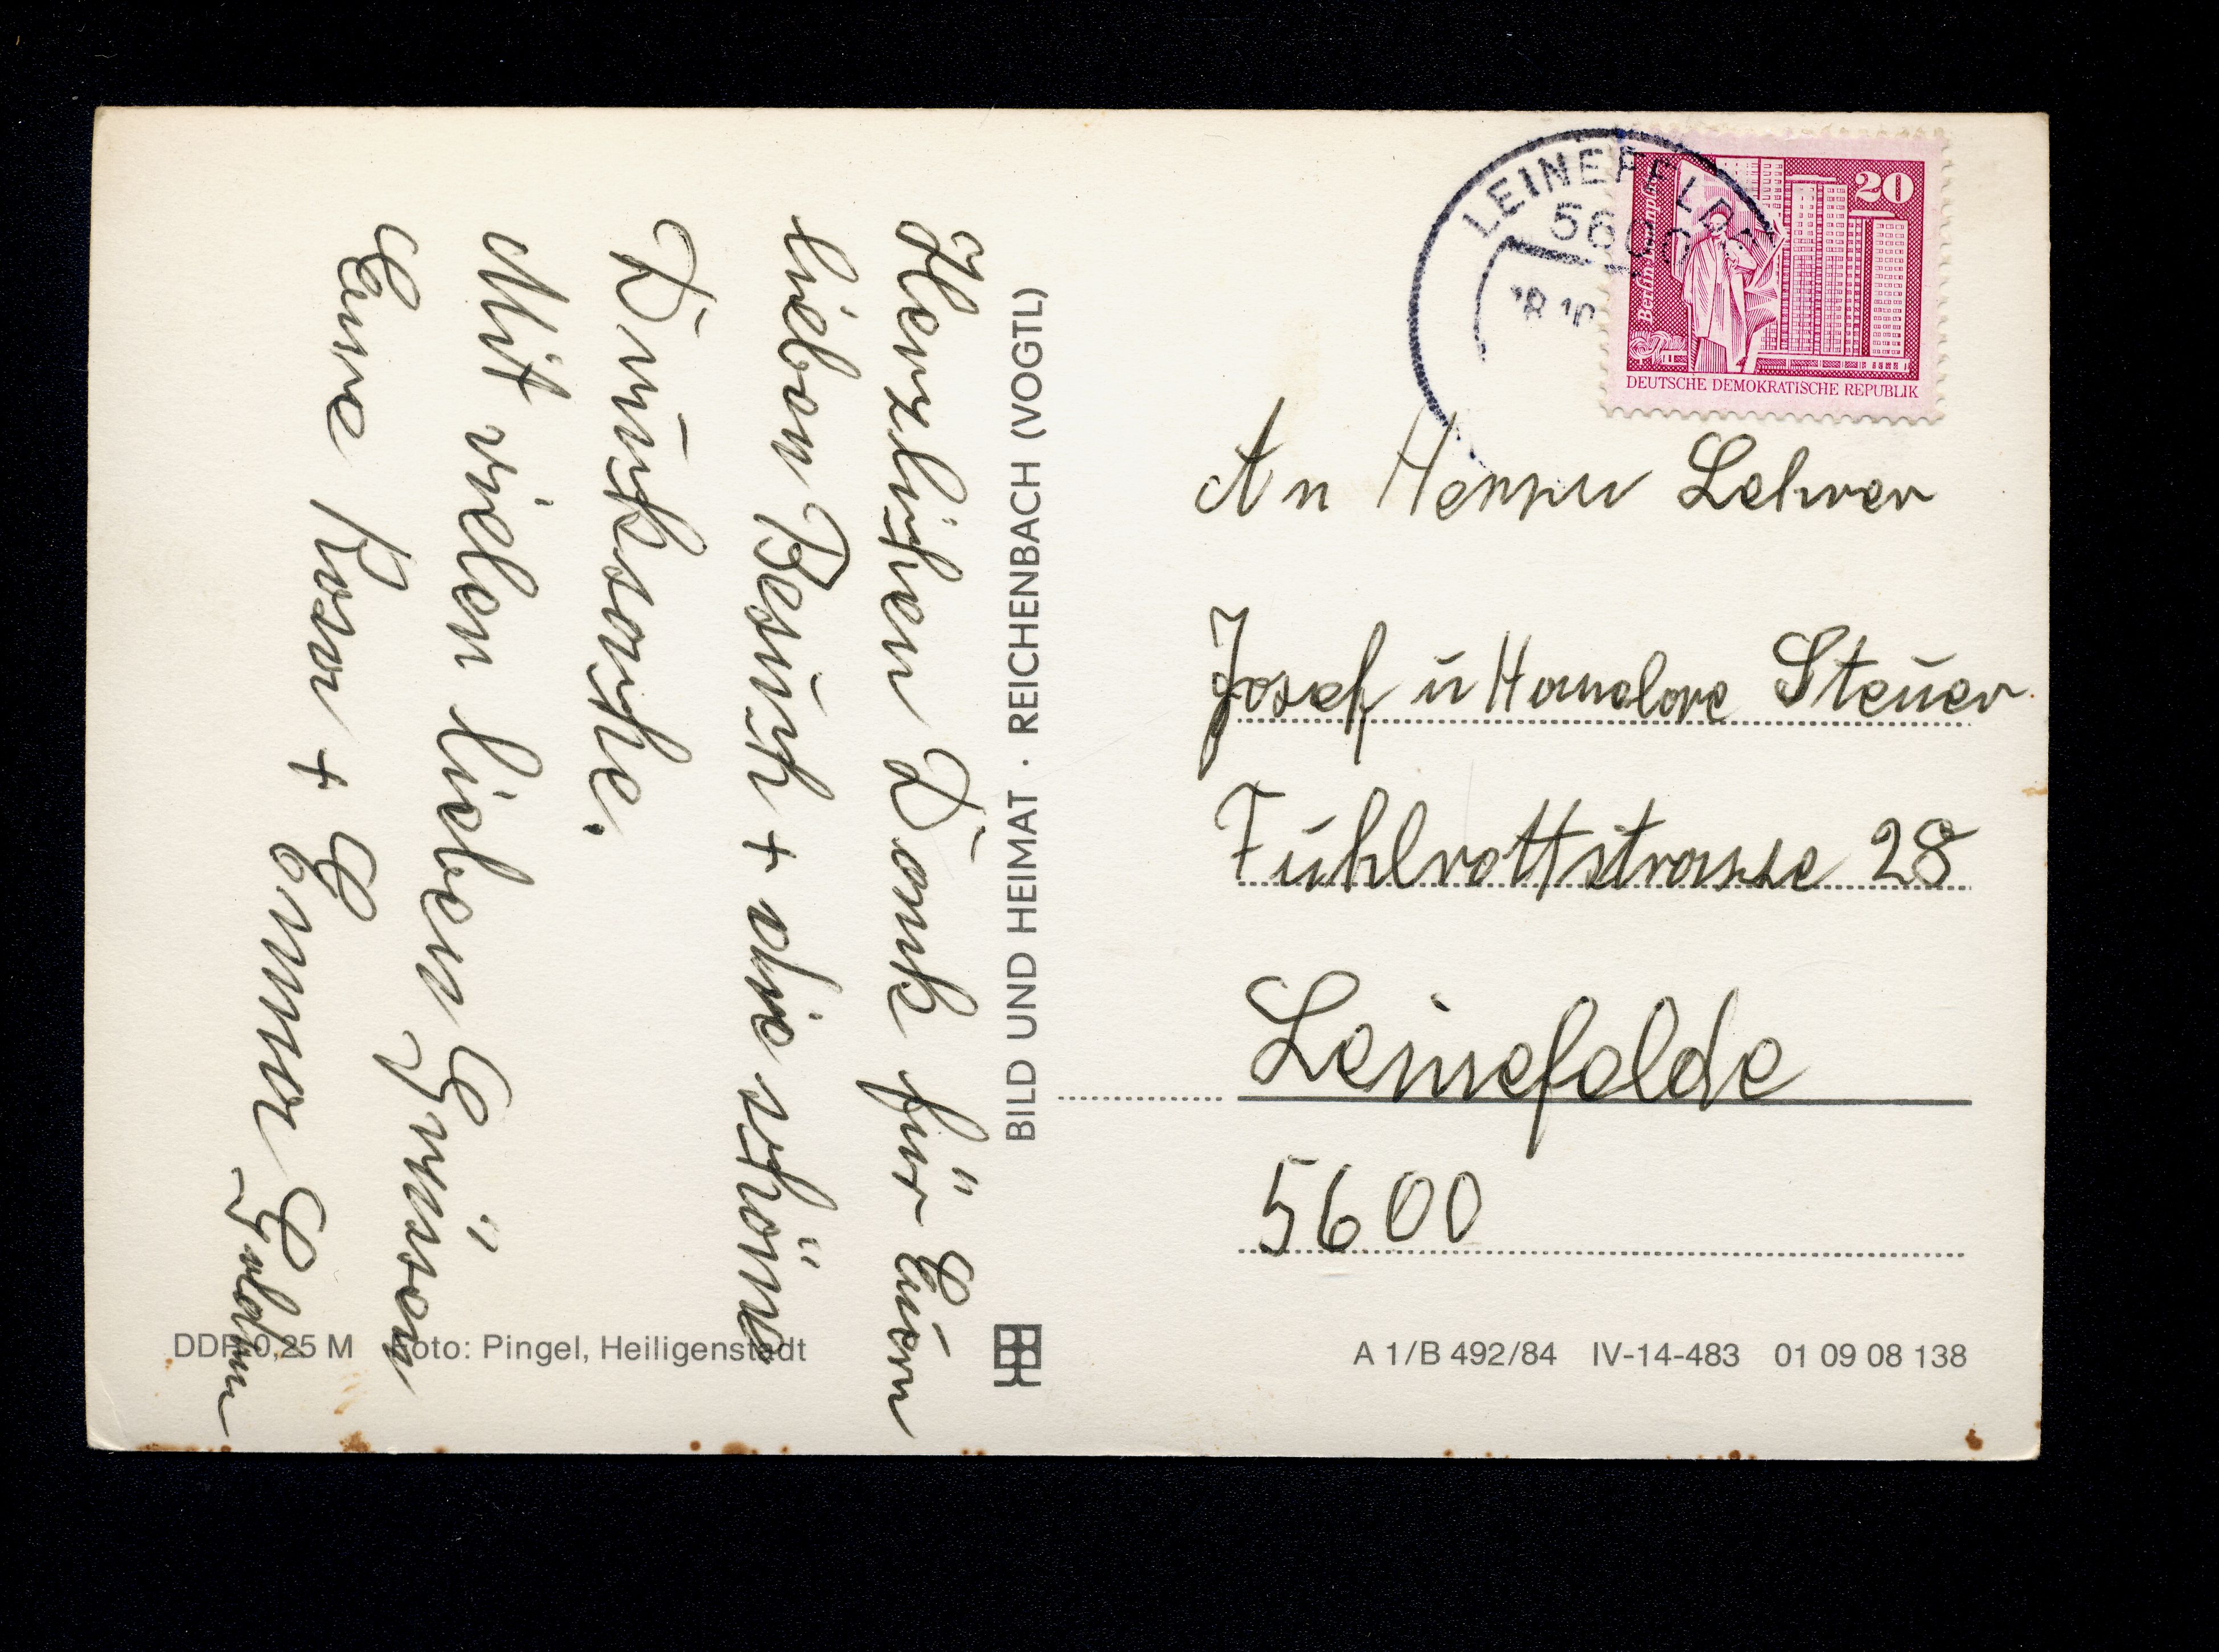 Herzlichen Dank für Euern
lieben Besuch + die schöne
Drucksache.
Mit vielen lieben Grüssen
Eure Rosa + Emma
BILD UND HEIMAT · REICHENBACH (VOGTL)
DDR 0,25 M Foto: Pingel, Heiligenstadt
LEINEFELDE
5600
18.10
20
Berlin Leninplatz
DEUTSCHE DEMOKRATISCHE REPUBLIK
An Herrn Lehrer
Josef u Hannelore Steuer
Fuhlrottstrasse 28
Leinefelde
5600
A 1/B 492/84 IV-14-483 01 09 08 138